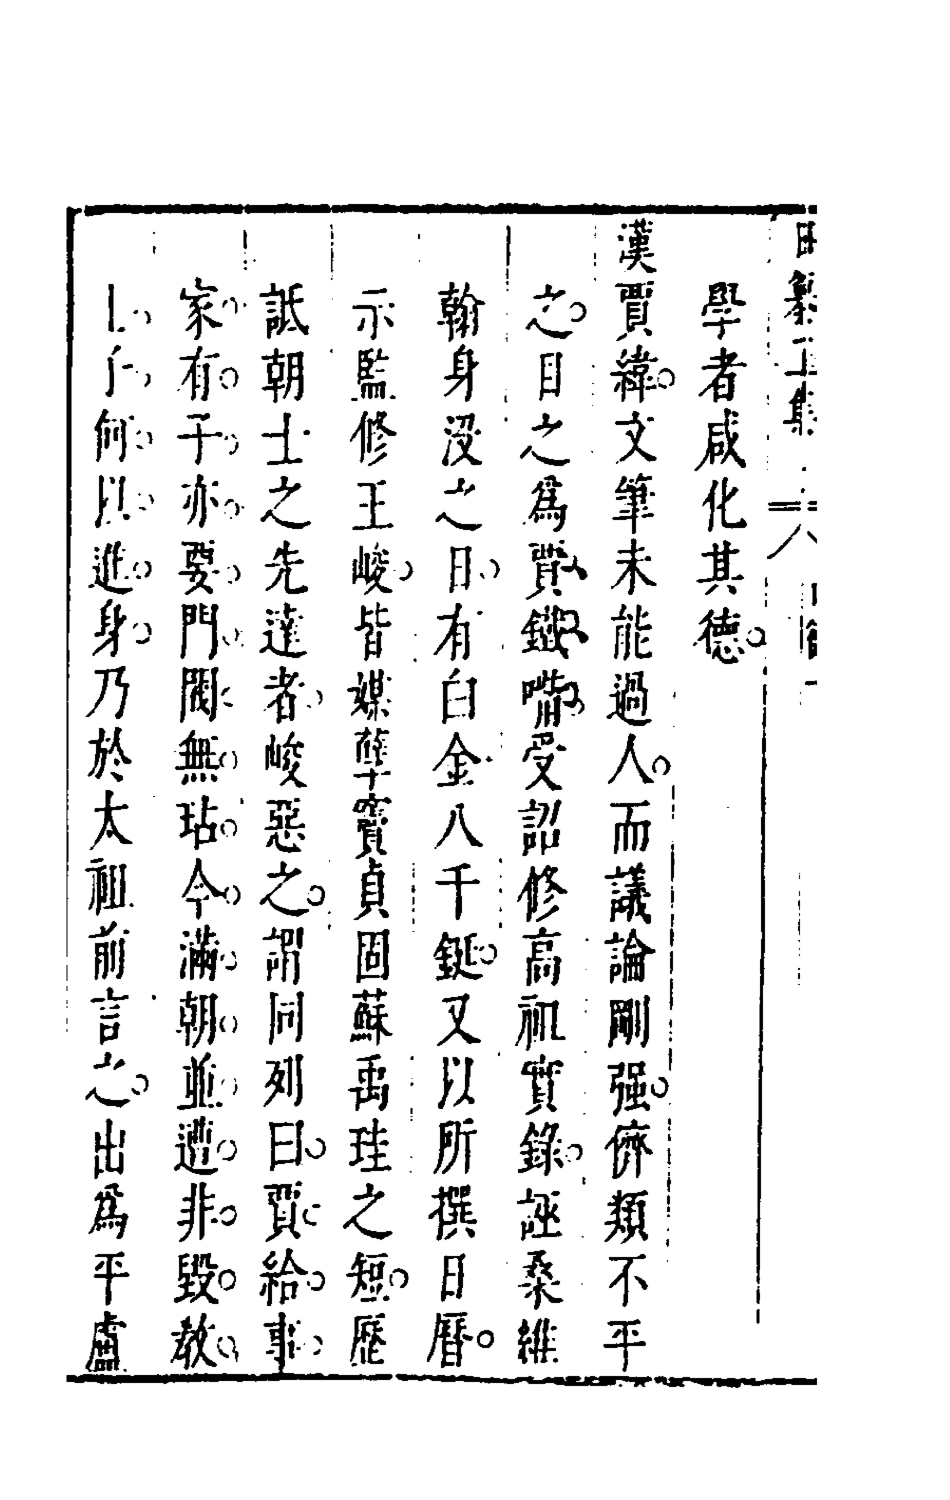 學者咸化其德
漢賈緯文筆未能過人而議論剛强儕類不平
之目之爲賈鐵嘴受詔修高祖實錄誣桑維
翰身没之日有白金八千鋌又以所撰日曆
示監修王峻皆媒孽竇貞固蘇禹珪之短歷
詆朝士之先達者峻惡之謂同列曰賈給事
家有子亦要門閥無玷今滿朝並遭非毀教
士子何以進身乃於太祖前言之出爲平盧